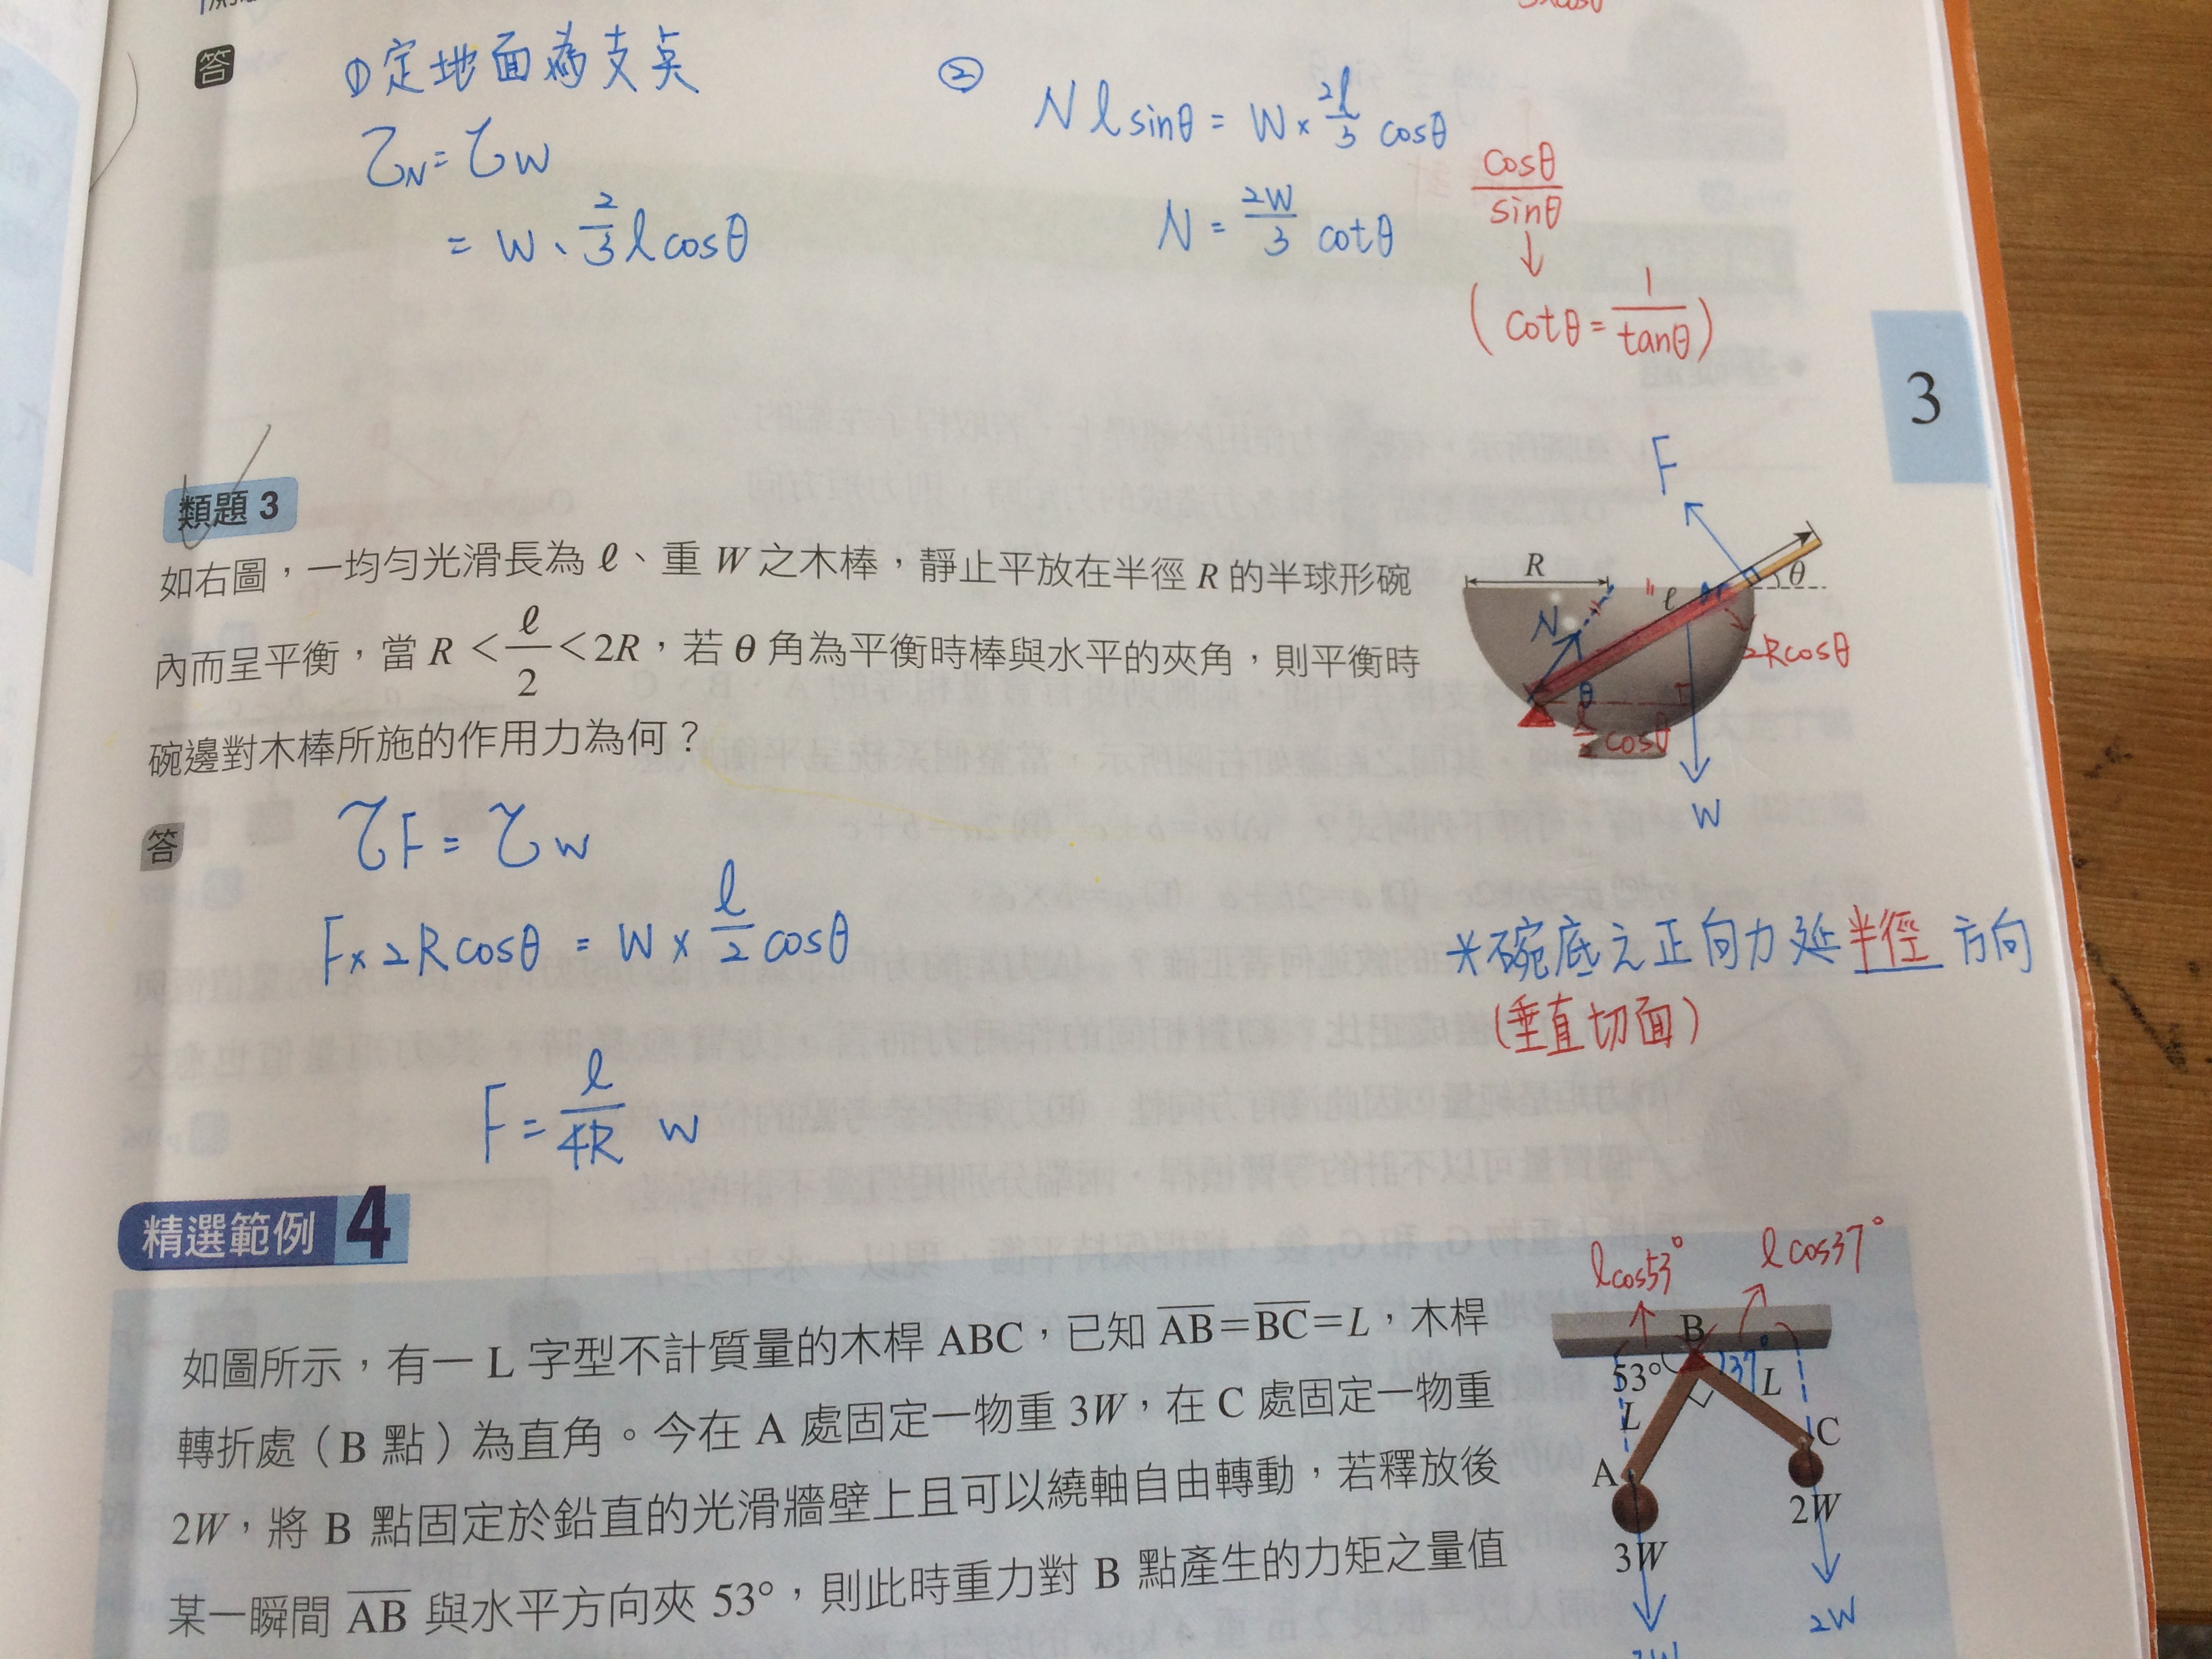 答
①定地面為支點
τN = τW
= W、2/3 ℓcosθ
②
Nℓsinθ = W × 2ℓ/3 cosθ
N = 2W/3 cotθ
cosθ/sinθ
↓
( cotθ = 1/tanθ )
3
類題 3
如右圖，一均勻光滑長為 ℓ、重 W 之木棒，靜止平放在半徑 R 的半球形碗
內而呈平衡，當 R < ℓ/2 < 2R，若 θ 角為平衡時棒與水平的夾角，則平衡時
碗邊對木棒所施的作用力為何？
F
R
ℓ
θ
N
2Rcosθ
θ
ℓ/2 cosθ
W
答
τF = τW
F × 2Rcosθ = W × ℓ/2 cosθ
F = ℓ/4R W
※碗底之正向力延半徑方向
(垂直切面)
精選範例 4
如圖所示，有一 L 字型不計質量的木桿 ABC，已知 AB=BC=L，木桿
轉折處（B 點）為直角。今在 A 處固定一物重 3W，在 C 處固定一物重
2W，將 B 點固定於鉛直的光滑牆壁上且可以繞軸自由轉動，若釋放後
某一瞬間 AB 與水平方向夾 53°，則此時重力對 B 點產生的力矩之量值
ℓcos53°
ℓcos37°
B
53°
37°
L
L
A
C
3W
2W
2W